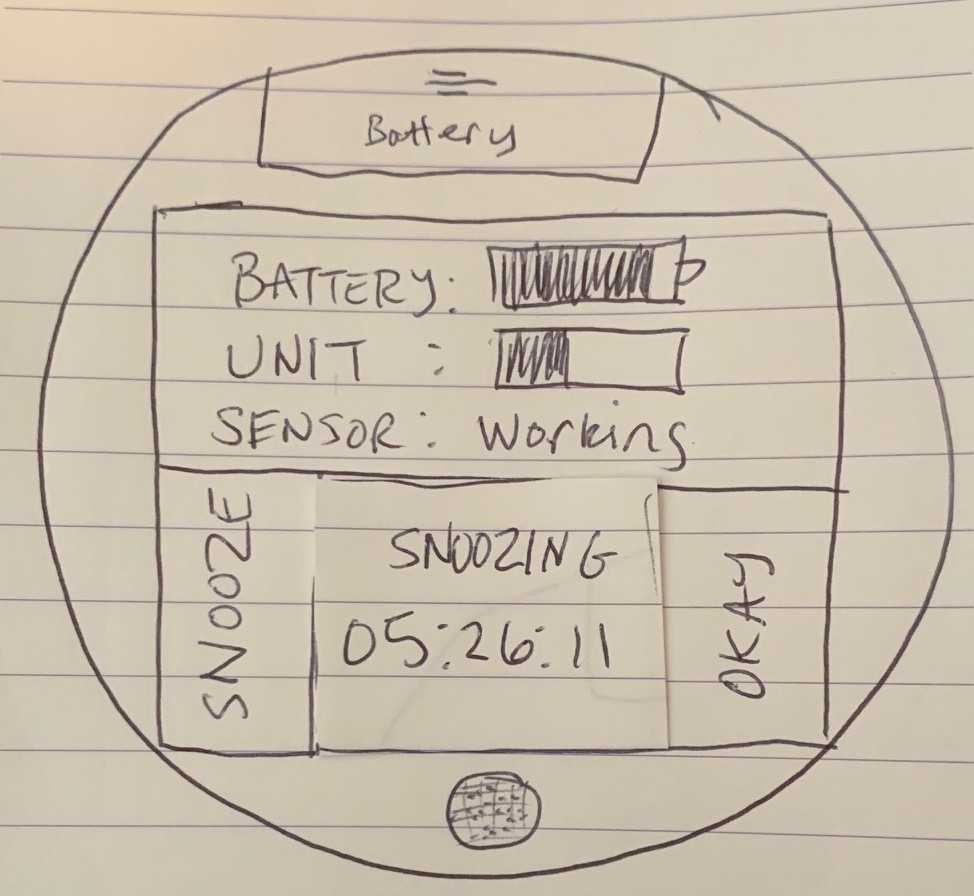 Battery
BATTERY:
UNIT :
SENSOR: Working
SNOOZE
SNOOZING
05:26:11
OKAY